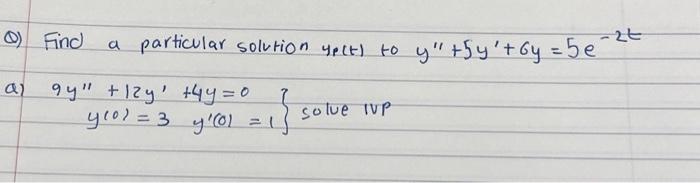 Q) Find a particular solution yp(t) to y" + 5y' + 6y = 5e^-2t
a) 9y" + 12y' + 4y = 0
y(0) = 3 y'(0) = 1 } solve IVP